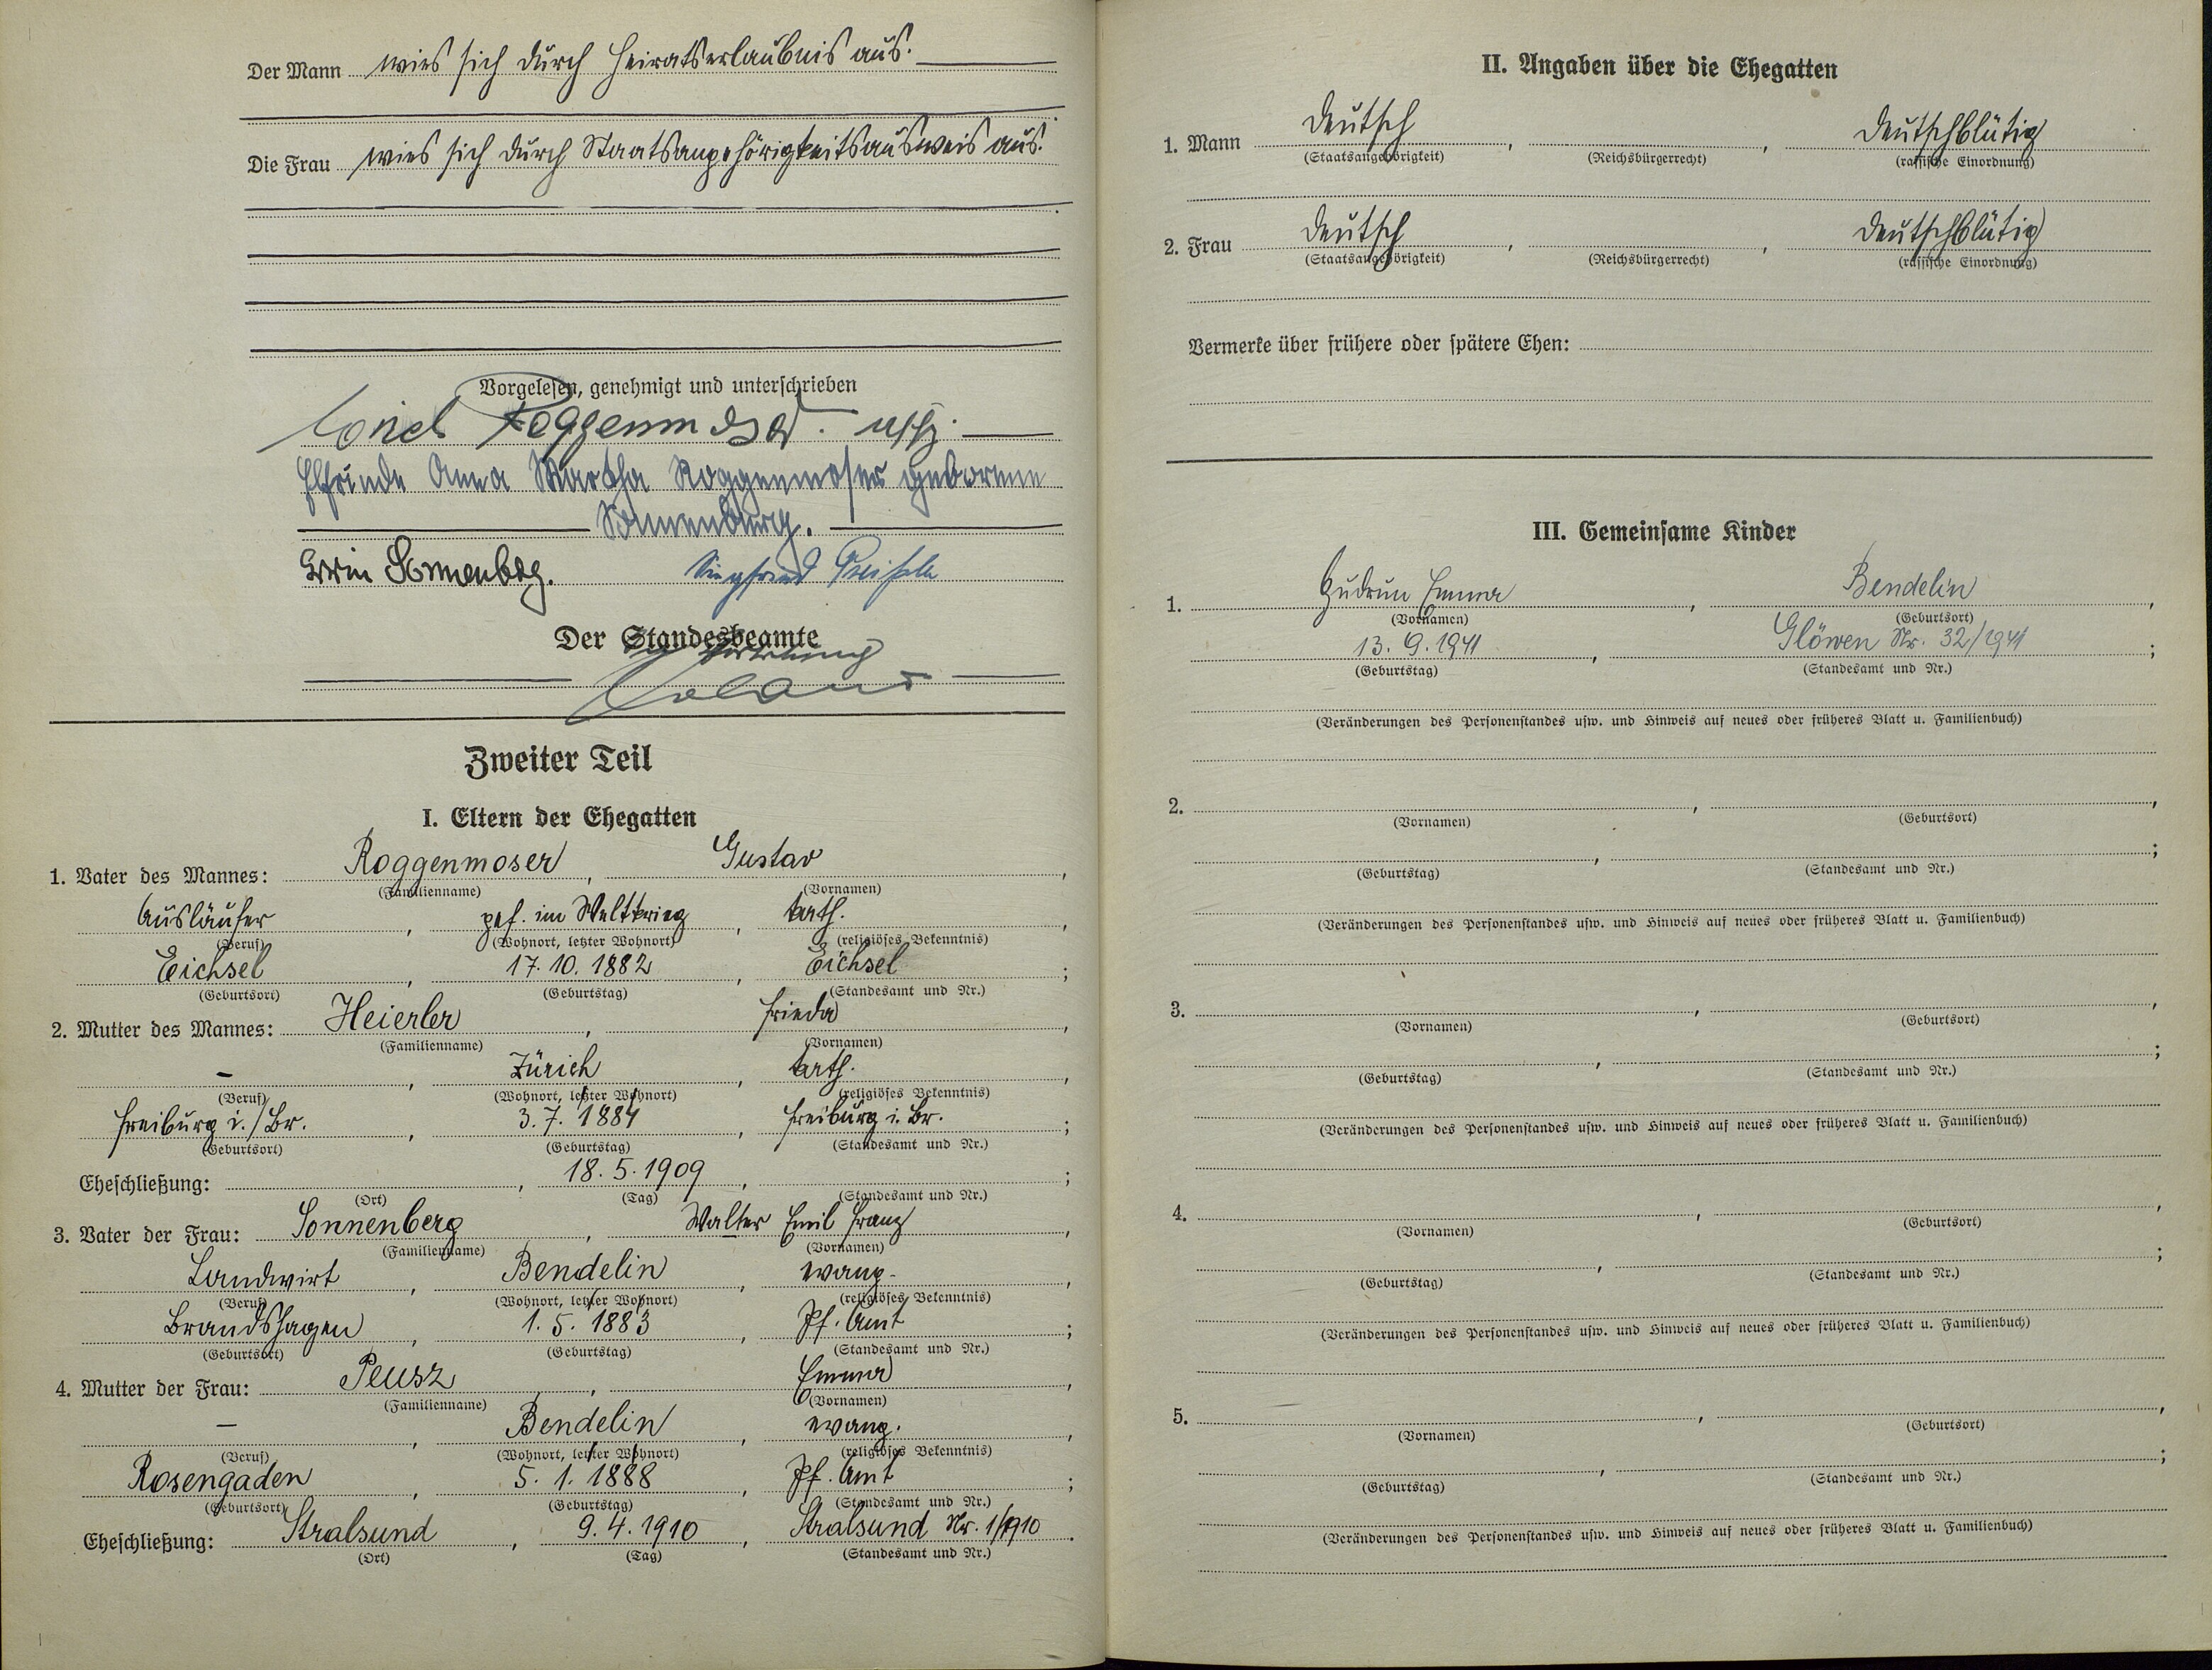 Der Mann wies sich durch Heiratserlaubnis aus.
Die Frau wies sich durch Staatsangehörigkeitsausweis aus.
Vorgelesen, genehmigt und unterschrieben
Roggenmoser. Uffz.
Elfriede Anna Martha Roggenmoser geborene
Sonnenberg.
Erwin Sonnenberg. Siegfried
Der Standesbeamte
In Vertretung
Zweiter Teil
I. Eltern der Ehegatten
1. Vater des Mannes: Roggenmoser, Gustav,
(Familienname) (Vornamen)
Ausläufer, gef. im Weltkrieg, kath.,
(Beruf) (Wohnort, letzter Wohnort) (religiöses Bekenntnis)
Eichsel, 17.10.1882, Eichsel;
(Geburtsort) (Geburtstag) (Standesamt und Nr.)
2. Mutter des Mannes: Heierler, Frieda,
(Familienname) (Vornamen)
–, Zürich, kath.,
(Beruf) (Wohnort, letzter Wohnort) (religiöses Bekenntnis)
Freiburg i./Br., 3.7.1884, Freiburg i. Br.;
(Geburtsort) (Geburtstag) (Standesamt und Nr.)
Eheschließung: , 18.5.1909, ;
(Ort) (Tag) (Standesamt und Nr.)
3. Vater der Frau: Sonnenberg, Walter Emil Franz,
(Familienname) (Vornamen)
Landwirt, Bendelin, evang.,
(Beruf) (Wohnort, letzter Wohnort) (religiöses Bekenntnis)
Brandshagen, 1.5.1883, Pf. Amt;
(Geburtsort) (Geburtstag) (Standesamt und Nr.)
4. Mutter der Frau: Peusz, Emma,
(Familienname) (Vornamen)
–, Bendelin, evang.,
(Beruf) (Wohnort, letzter Wohnort) (religiöses Bekenntnis)
Rosengaden, 5.1.1888, Pf. Amt;
(Geburtsort) (Geburtstag) (Standesamt und Nr.)
Eheschließung: Stralsund, 9.4.1910, Stralsund Nr. 1/1910.
(Ort) (Tag) (Standesamt und Nr.)
II. Angaben über die Ehegatten
1. Mann Deutsch, , Deutschblütig
(Staatsangehörigkeit) (Reichsbürgerrecht) (rassische Einordnung)
2. Frau Deutsch, , Deutschblütig
(Staatsangehörigkeit) (Reichsbürgerrecht) (rassische Einordnung)
Vermerke über frühere oder spätere Ehen:
III. Gemeinsame Kinder
1. Gudrun Emma, Bendelin,
(Vornamen) (Geburtsort)
13.9.1941, Glöwen Nr. 32/1941;
(Geburtstag) (Standesamt und Nr.)
(Veränderungen des Personenstandes usw. und Hinweis auf neues oder früheres Blatt u. Familienbuch)
2. , ,
(Vornamen) (Geburtsort)
, ;
(Geburtstag) (Standesamt und Nr.)
(Veränderungen des Personenstandes usw. und Hinweis auf neues oder früheres Blatt u. Familienbuch)
3. , ,
(Vornamen) (Geburtsort)
, ;
(Geburtstag) (Standesamt und Nr.)
(Veränderungen des Personenstandes usw. und Hinweis auf neues oder früheres Blatt u. Familienbuch)
4. , ,
(Vornamen) (Geburtsort)
, ;
(Geburtstag) (Standesamt und Nr.)
(Veränderungen des Personenstandes usw. und Hinweis auf neues oder früheres Blatt u. Familienbuch)
5. , ,
(Vornamen) (Geburtsort)
, ;
(Geburtstag) (Standesamt und Nr.)
(Veränderungen des Personenstandes usw. und Hinweis auf neues oder früheres Blatt u. Familienbuch)